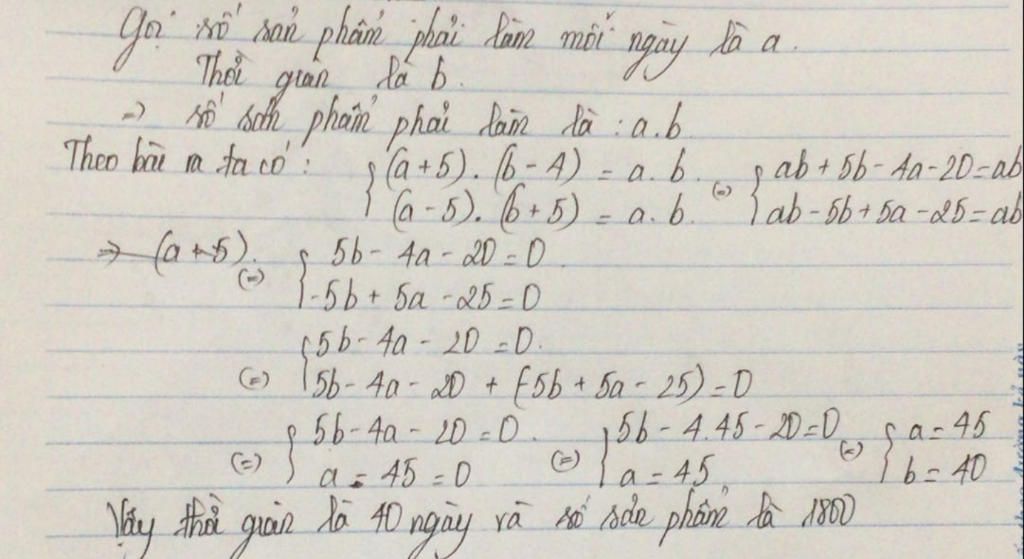 Gọi số sản phẩm phải làm mỗi ngày là a.
Thời gian là b.
=) số sản phẩm phải làm là : a.b
Theo bài ra ta có : { (a+5). (b-4) = a.b. (=) { ab + 5b - 4a - 20 = ab
(a-5). (b+5) = a.b. ab - 5b + 5a - 25 = ab
=> (a+5).
(=) { 5b - 4a - 20 = 0.
-5b + 5a - 25 = 0
{ 5b - 4a - 20 = 0.
(=) 5b - 4a - 20 + (-5b + 5a - 25) = 0
(=) { 5b - 4a - 20 = 0. (=) { 5b - 4.45 - 20 = 0 (=) { a = 45
a - 45 = 0 a = 45. b = 40
Vậy thời gian là 40 ngày và số sản phẩm là 1800